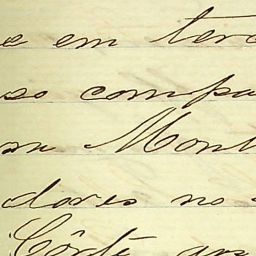 e em terc
so compa
su Mont
dores no
Côrte